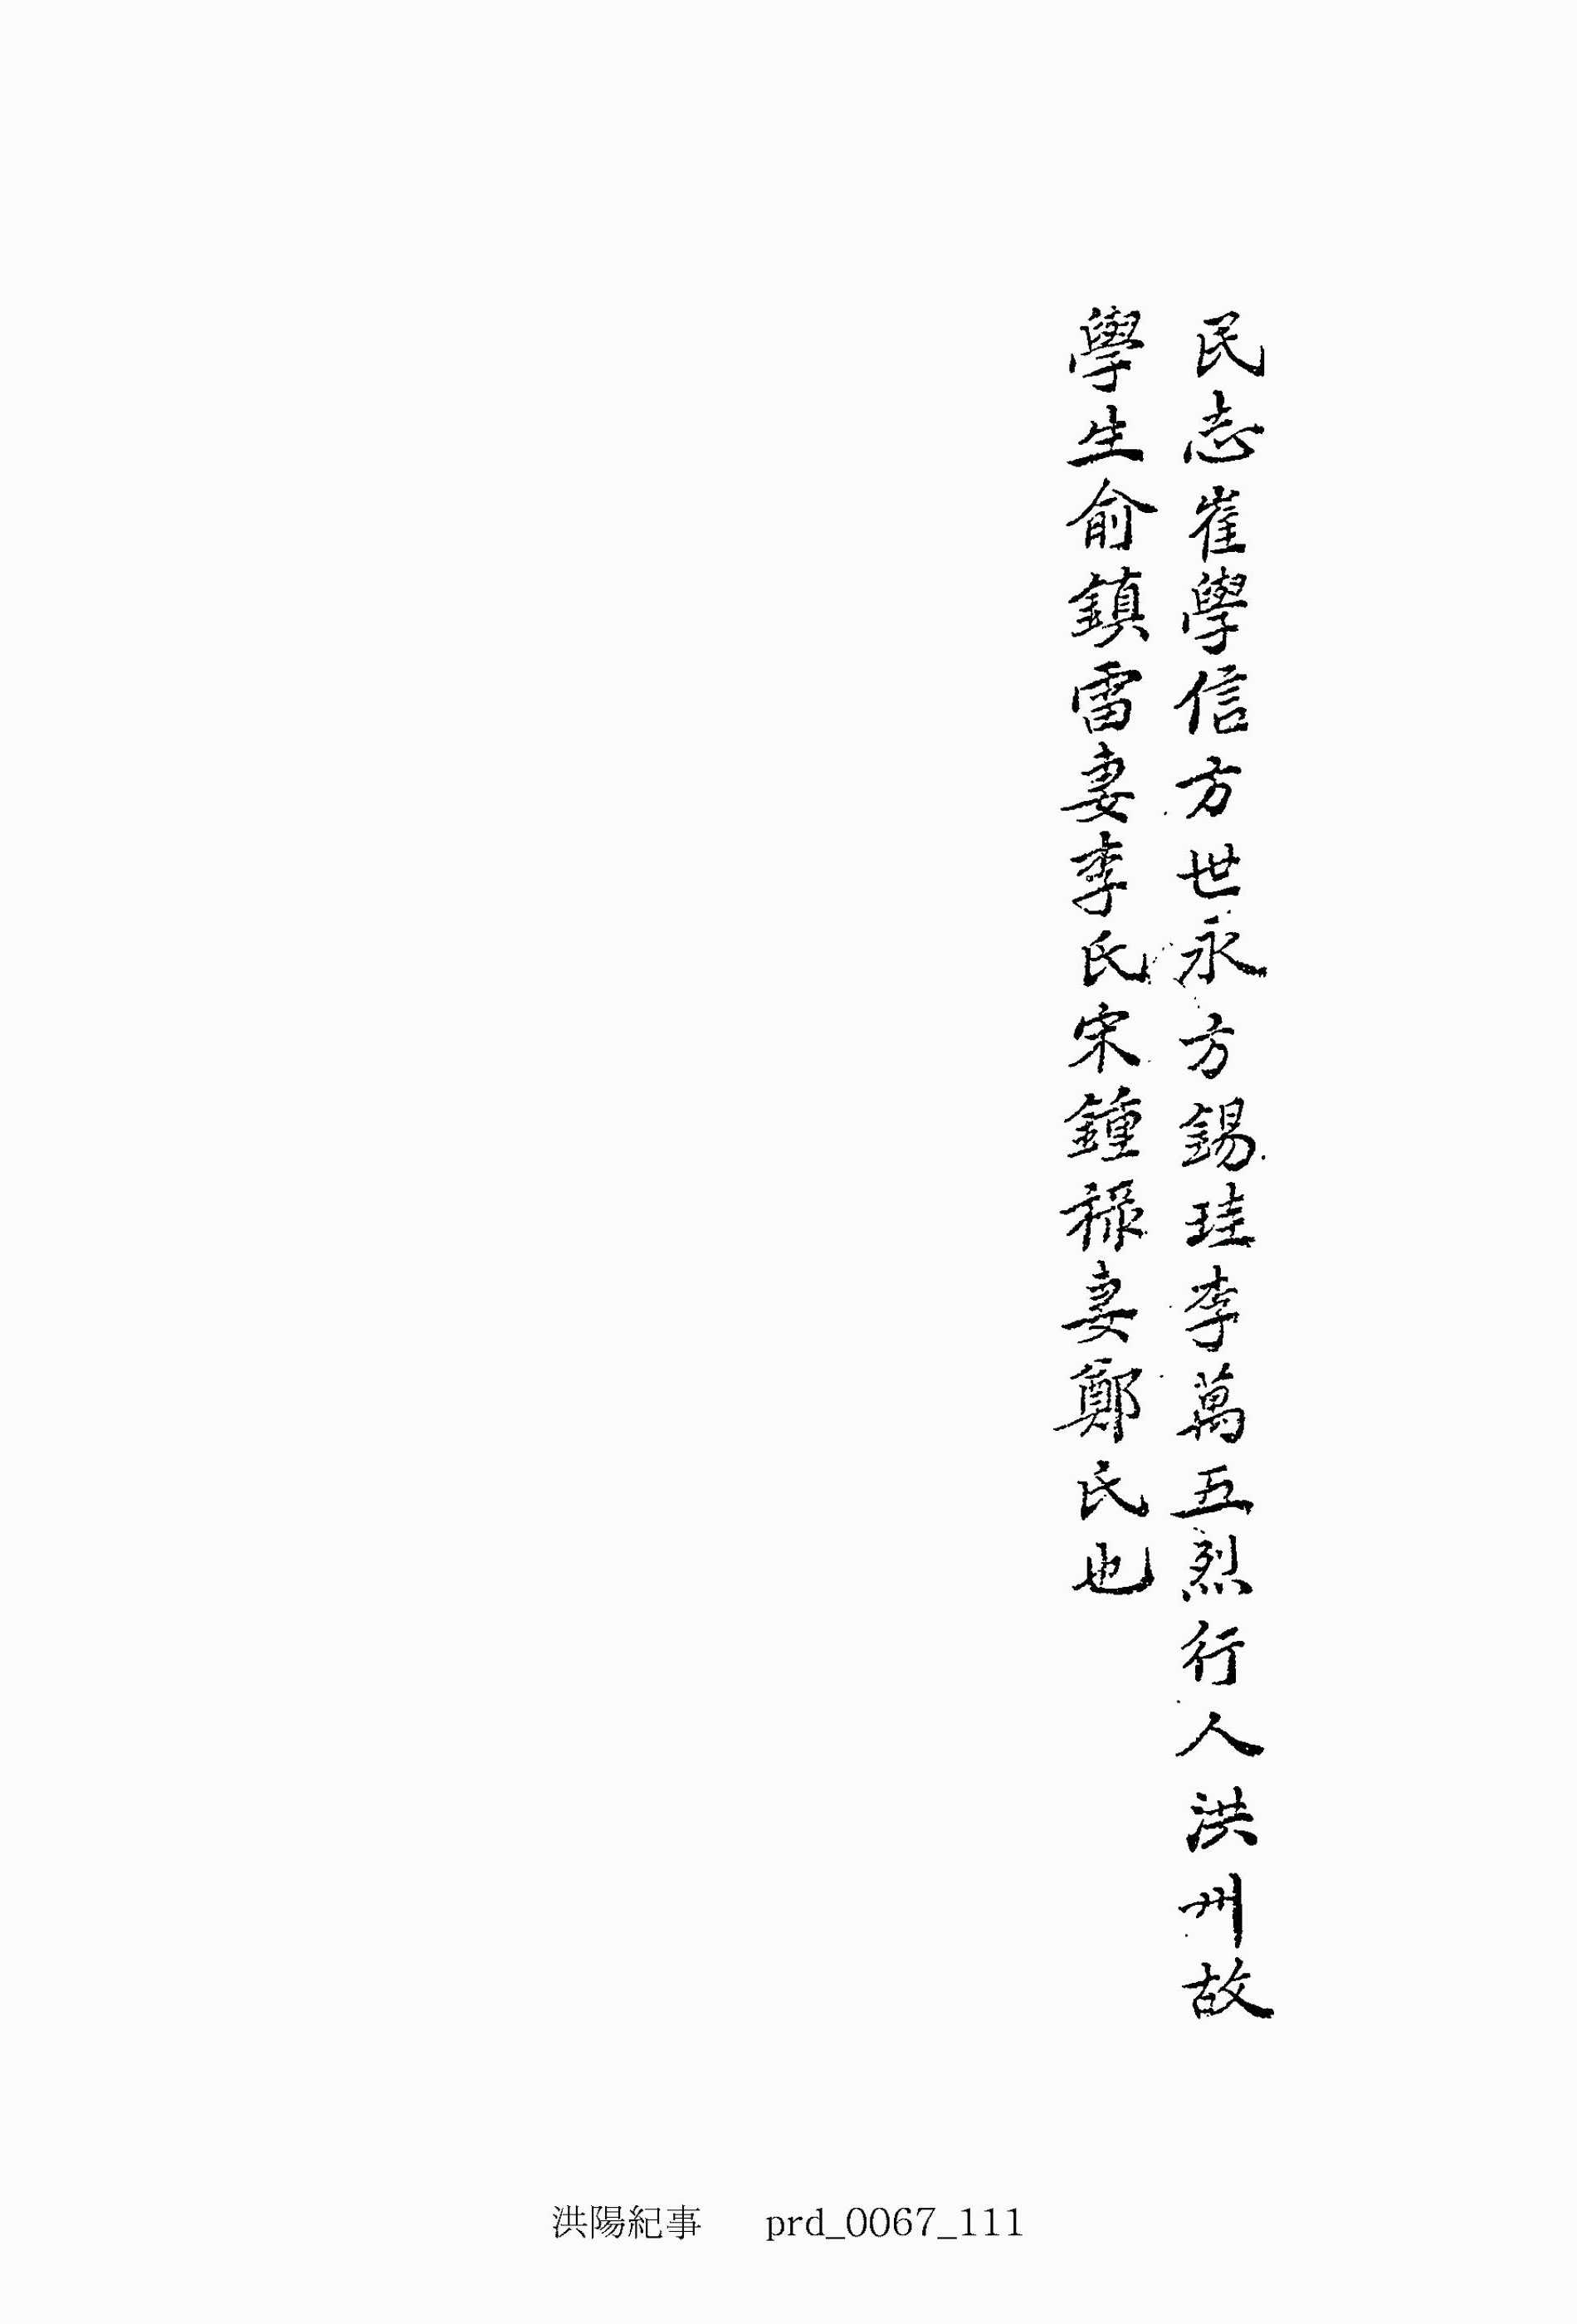 民志崔學信方世永方錫珪李萬五烈行人洪州故
學生俞鎮雷妻李氏宋鍾祿妻鄭氏也
洪陽紀事 prd_0067_111